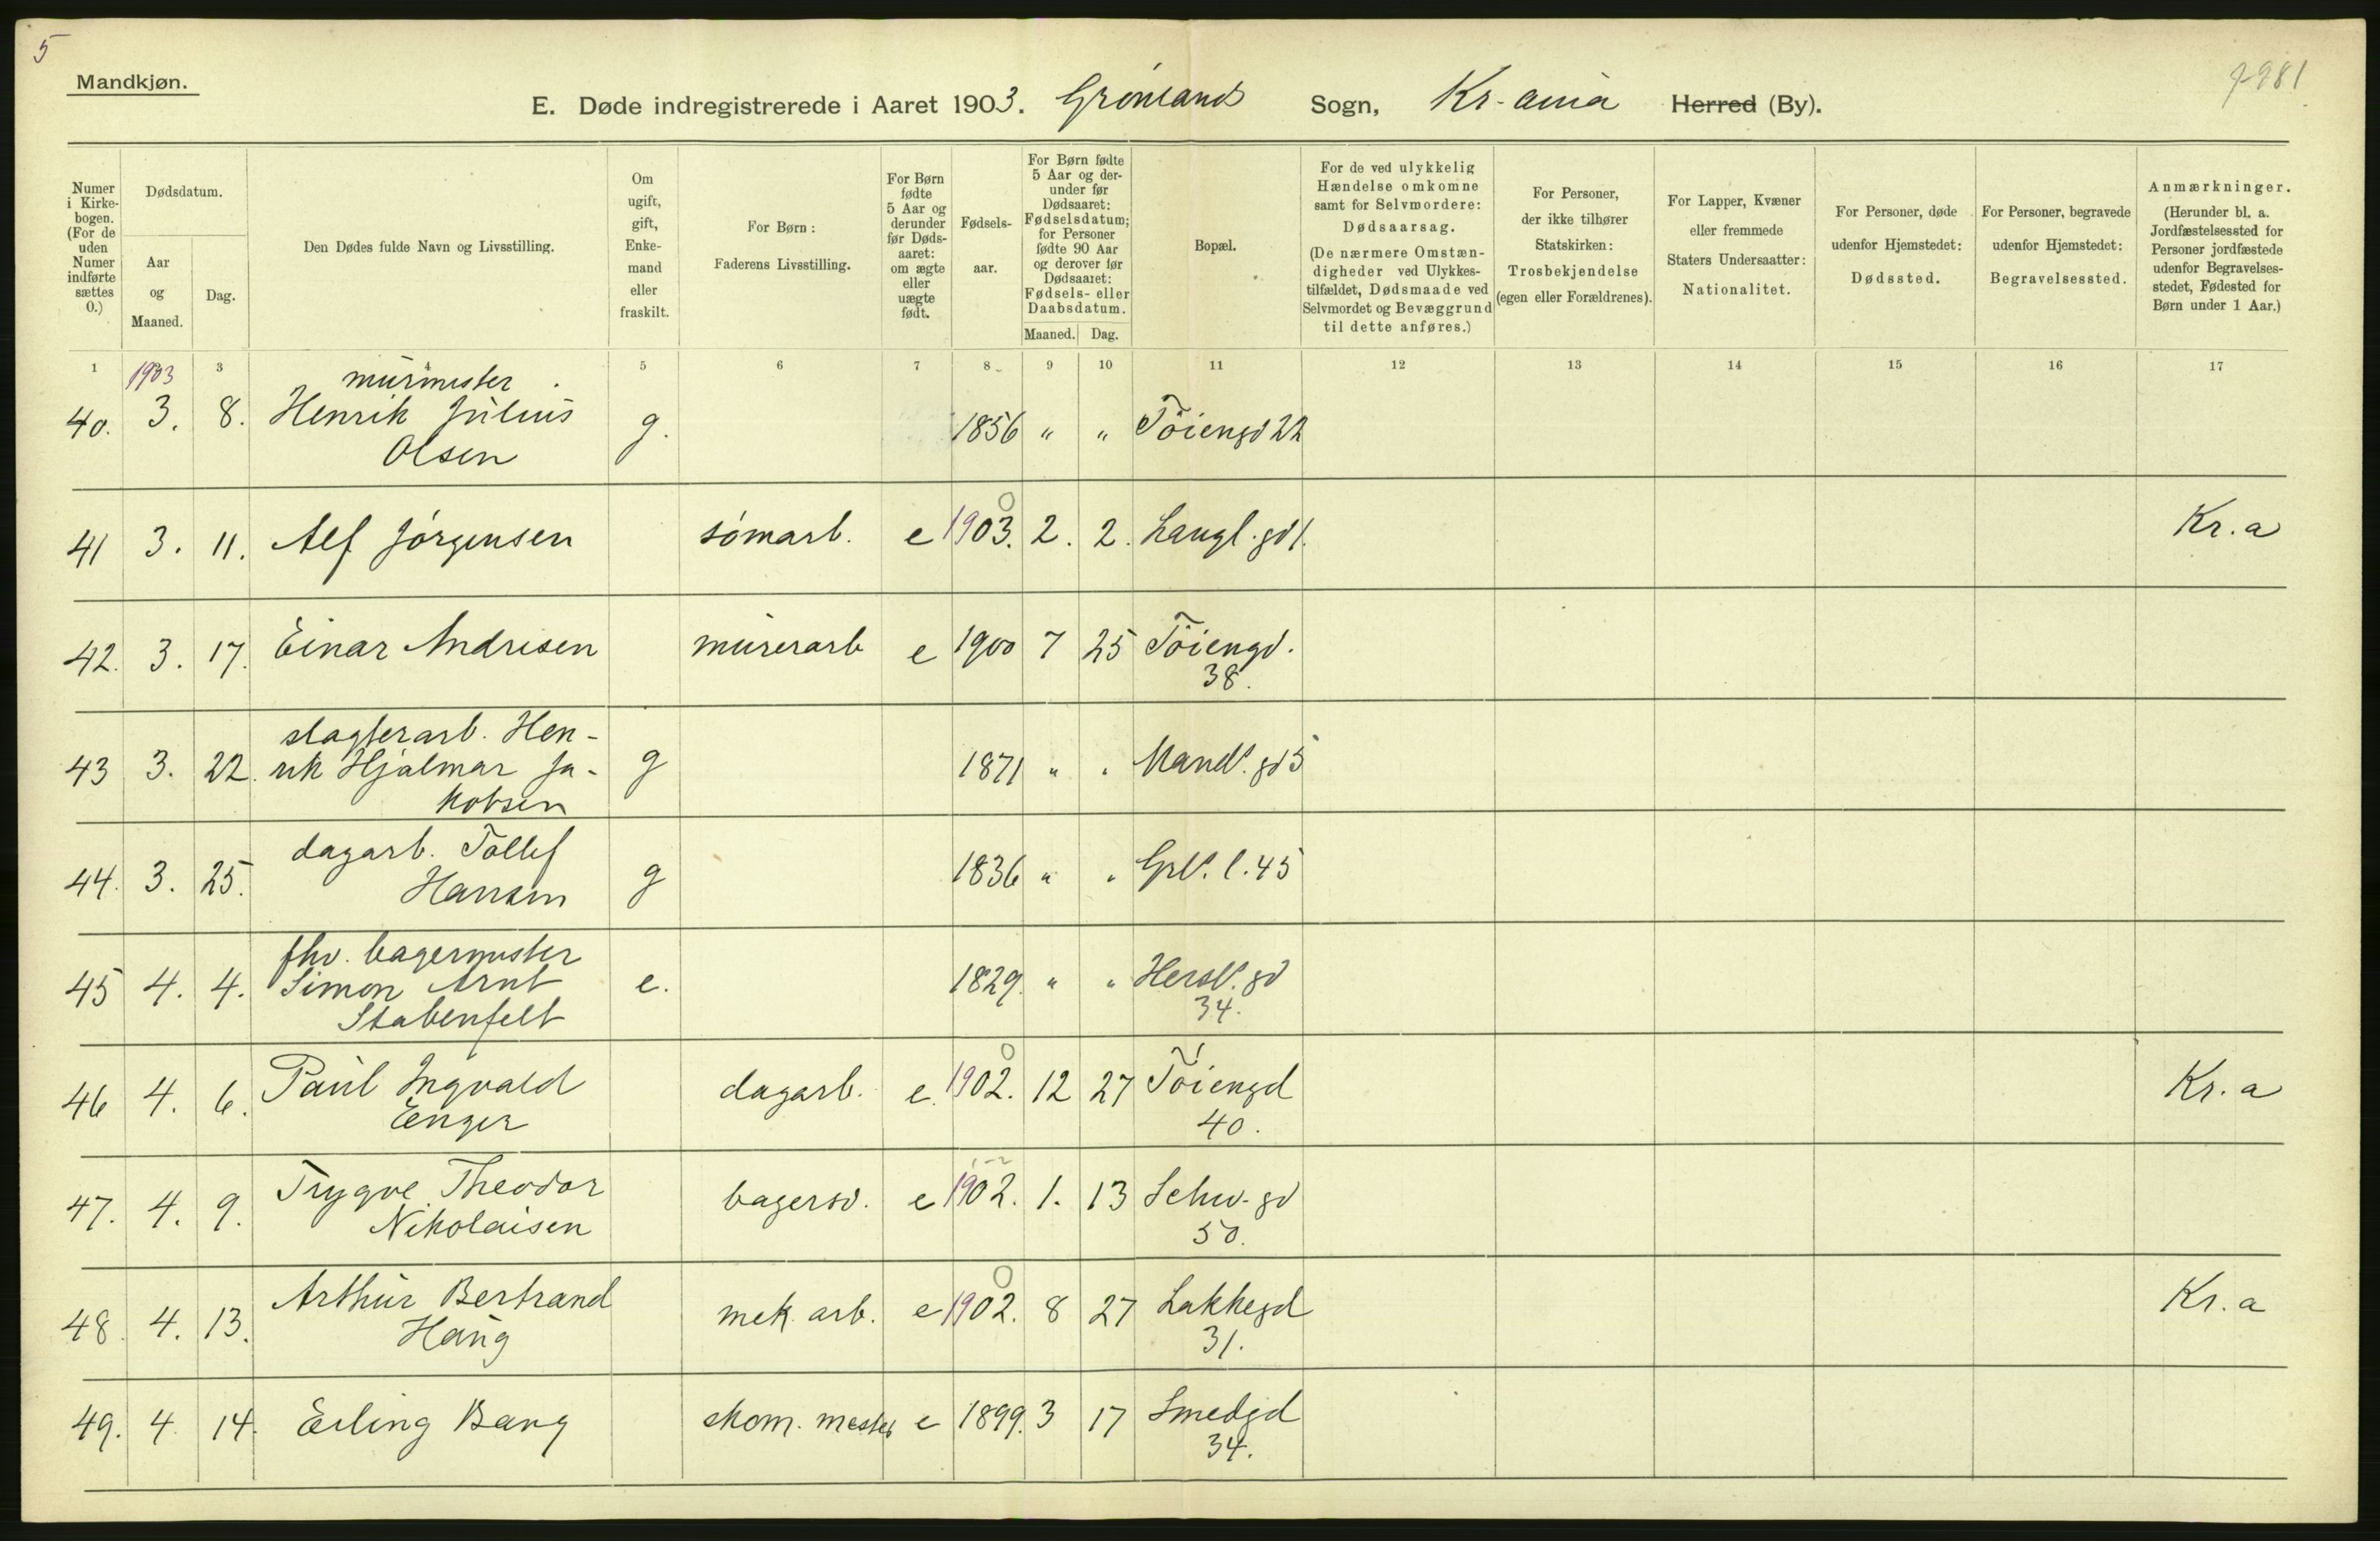 5
Mandkjøn.
7-981
E. Døde indregistrerede i Aaret 1903. Grønlands Sogn, Kr-ania Herred (By).
Numer i Kirkebogen. (For de uden Numer indførte sættes 0.)
Dødsdatum.
Aar og Maaned.
Dag.
Den Dødes fulde Navn og Livsstilling.
Om ugift, gift, Enkemand eller fraskilt.
For Børn: Faderens Livsstilling.
For Børn fødte 5 Aar og derunder før Dødsaaret: om ægte eller uægte født.
Fødselsaar.
For Børn fødte 5 Aar og derunder før Dødsaaret: Fødselsdatum; for Personer fødte 90 Aar og derover før Dødsaaret: Fødsels- eller Daabsdatum.
Maaned. Dag.
Bopæl.
For de ved ulykkelig Hændelse omkomne samt for Selvmordere: Dødsaarsag. (De nærmere Omstændigheder ved Ulykkestilfældet, Dødsmaade ved Selvmordet og Bevæggrund til dette anføres.)
For Personer, der ikke tilhører Statskirken: Trosbekjendelse (egen eller Forældrenes).
For Lapper, Kvæner eller fremmede Staters Undersaatter: Nationalitet.
For Personer, døde udenfor Hjemstedet: Dødssted.
For Personer, begravede udenfor Hjemstedet: Begravelsessted.
Anmærkninger. (Herunder bl. a. Jordfæstelsessted for Personer jordfæstede udenfor Begravelsesstedet, Fødested for Børn under 1 Aar.)
1 3 4 5 6 7 8 9 10 11 12 13 14 15 16 17
1903
murmester
40. 3. 8. Henrik Julius g. 1856 " " Töiengd 22
Olsen
41 3. 11. Alf Jörgensen sömarb. e 1903. 2. 2. Langl. gd 1. Kr. a
42. 3. 17. Einar Andresen murerarb e 1900 7 25 Töiengd.
38.
slagterarb. Hen-
43 3. 22. rik Hjalmar Ja- g 1871 " " Mands. gd 5
kobsen
dagarb. Tollef
44. 3. 25. Hansen g 1836 " " Grls. l. 45
fhv. bagermester
45 4. 4. Simon Arnt e. 1829. " " Hersls. gd
Stabenfelt 34.
46 4. 6. Paul Ingvald dagarb. e. 1902. 12 27 Töiengd Kr. a
Enger 40.
47. 4. 9. Trygve Theodor bagersv. e 1902. 1. 13 Schw. gd
Nikolaisen 50.
48. 4. 13. Arthur Bertrand mek. arb. e 1902. 8 27 Lakkegd Kr. a
Haug 31.
49. 4. 14. Erling Bang skom. mester e 1899. 3 17 Smedgd
34.